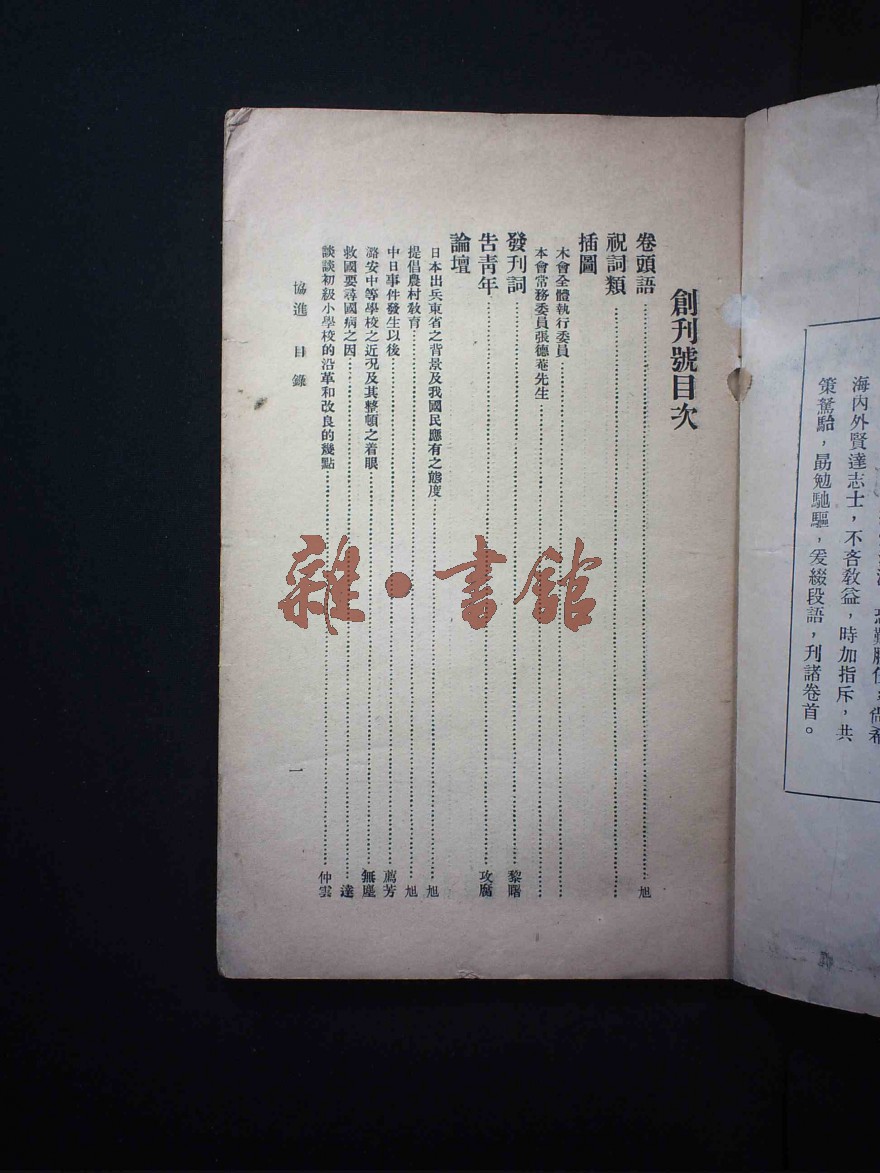 海內外賢達志士，不吝教益，時加指斥，共
策駑駘，勗勉馳驅，爰綴段語，刊諸卷首。
創刊號目次
卷頭語……旭
祝詞類……
插圖
本會全體執行委員……
本會常務委員張德菴先生……
發刊詞……黎曙
告青年……攻腐
論壇
日本出兵東省之背景及我國民應有之態度……旭
提倡農村敎育……旭
中日事件發生以後……薦芳
潞安中等學校之近况及其整頓之着眼……無塵
救國要尋國病之因……達
談談初級小學校的沿革和改良的幾點……仲雲
協進 目錄 一
雜·書館